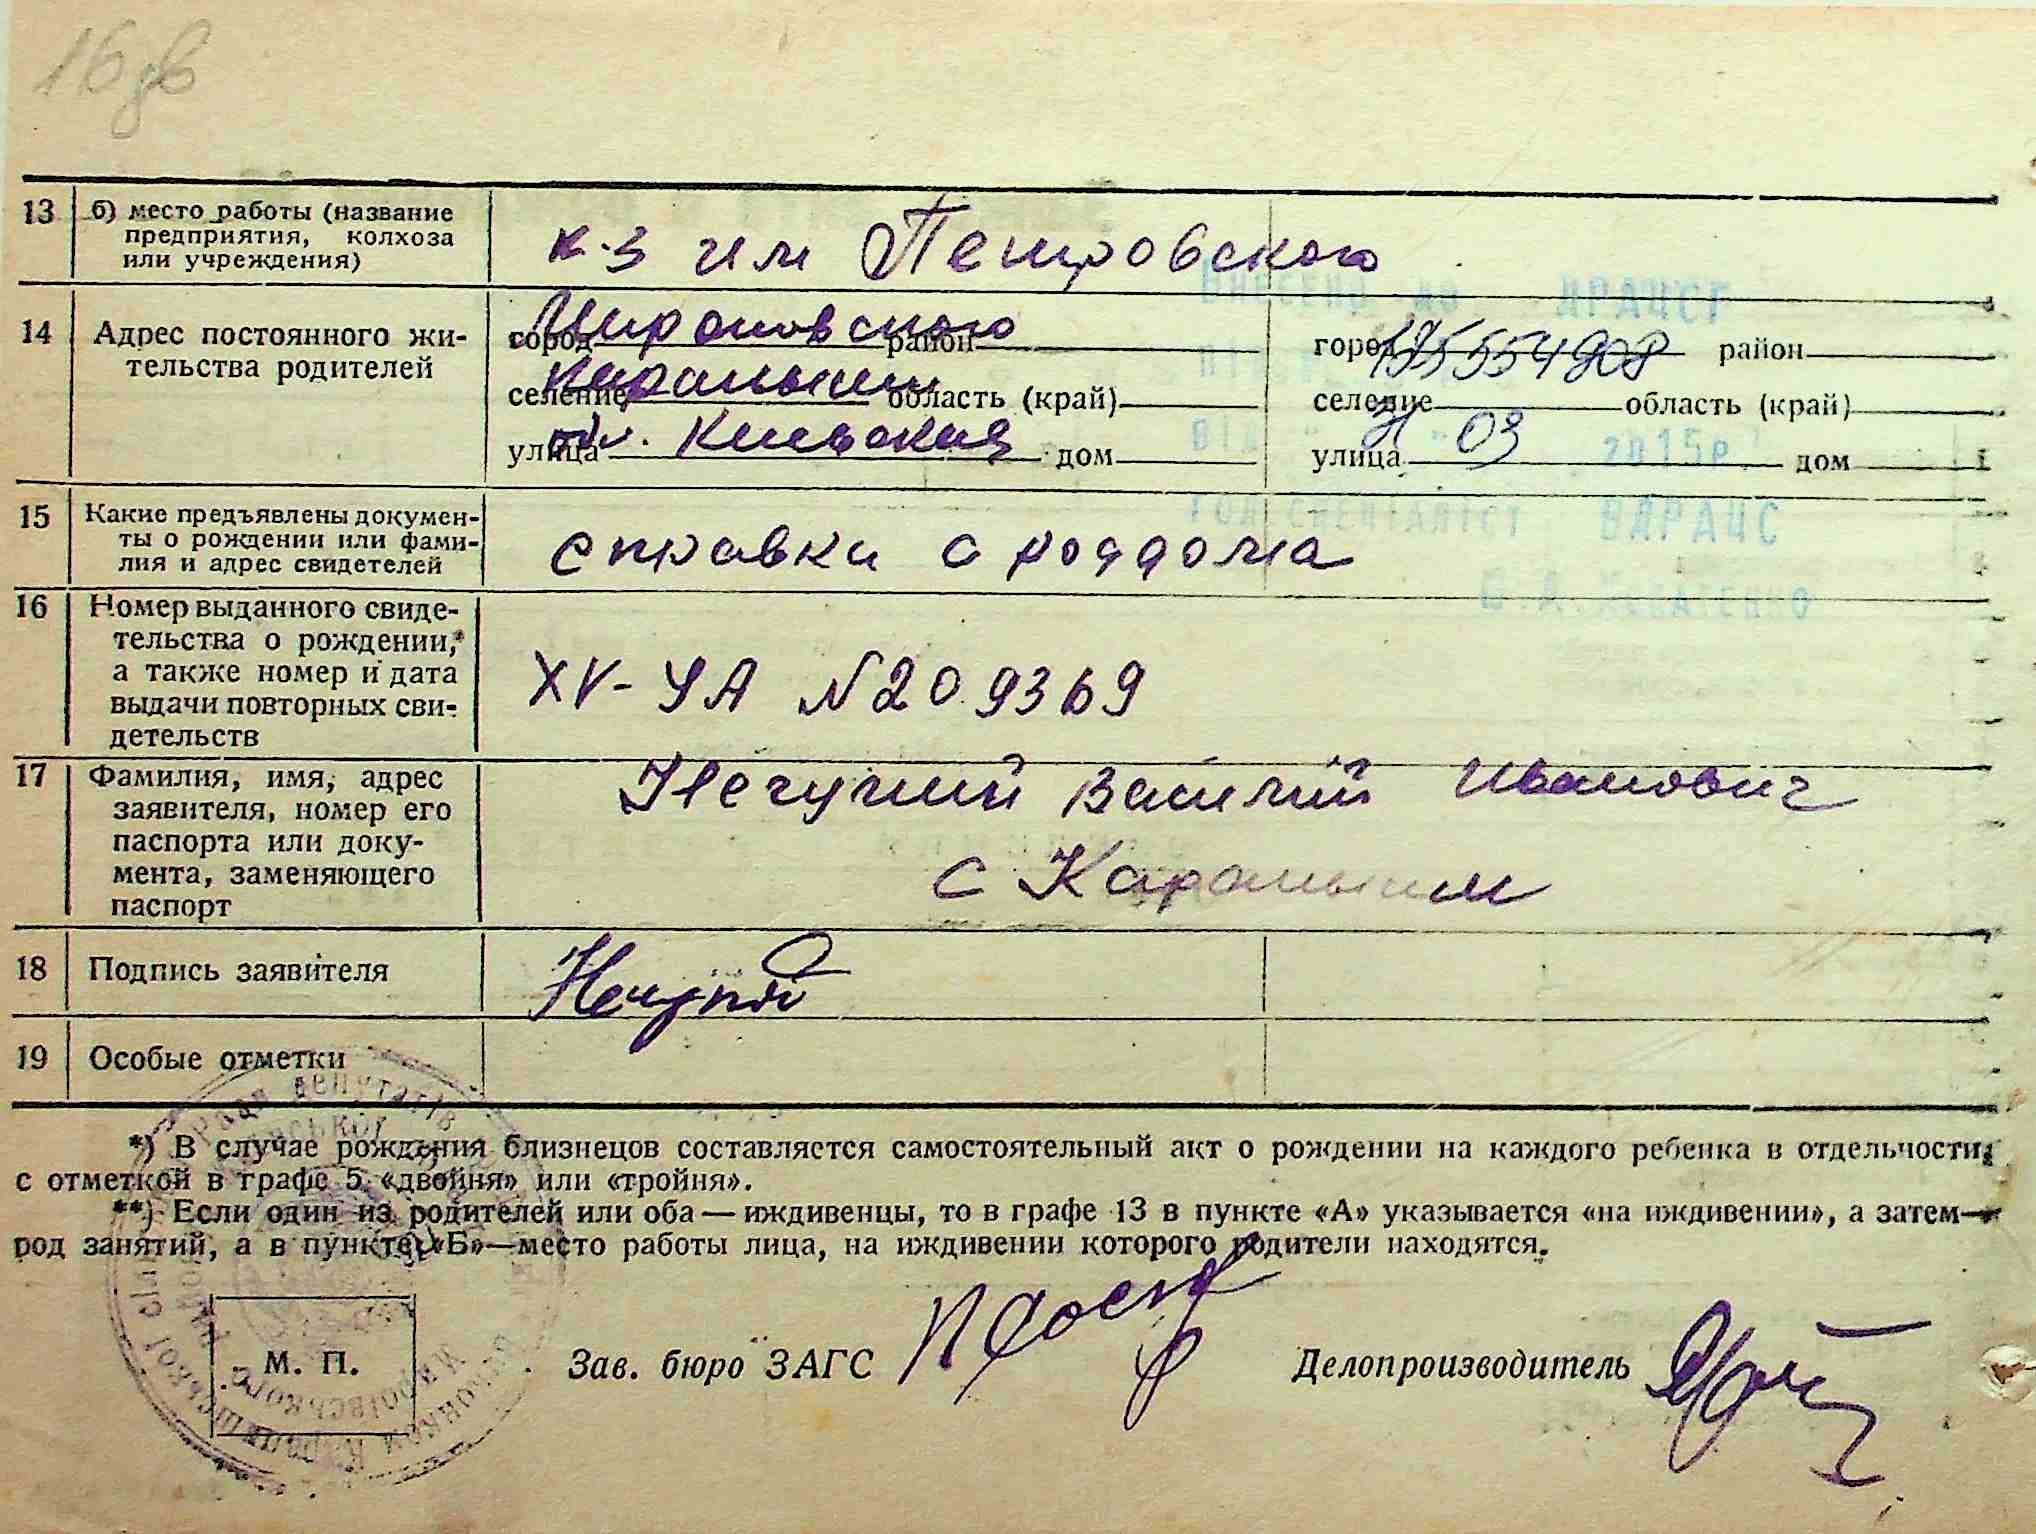 16 дв
13 б) место работы (название
предприятия, колхоза
или учреждения)
к-з им Петровского
14 Адрес постоянного жи-
тельства родителей
Мироновского
город район
Карапыши
селение область (край)
обл. Киевская
улица дом
город 195554908 район
селение область (край)
03
улица дом
ВНЕСЕНО ДО ДРАЦСГ
ВІД 2015р.
ГОЛ.СПЕЦІАЛІСТ ВДРАЦС
15 Какие предъявлены докумен-
ты о рождении или фами-
лия и адрес свидетелей
справки с роддома
16 Номер выданного свиде-
тельства о рождении,*
а также номер и дата
выдачи повторных сви-
детельств
XV-УА N209369
17 Фамилия, имя, адрес
заявителя, номер его
паспорта или доку-
мента, заменяющего
паспорт
Василий Иванович
с Карапыши
18 Подпись заявителя
19 Особые отметки
*) В случае рождения близнецов составляется самостоятельный акт о рождении на каждого ребенка в отдельности,
с отметкой в графе 5 «двойня» или «тройня».
**) Если один из родителей или оба — иждивенцы, то в графе 13 в пункте «А» указывается «на иждивении», а затем—
род занятий, а в пункте «Б»—место работы лица, на иждивении которого родители находятся.
М. П.
Зав. бюро ЗАГС
Делопроизводитель